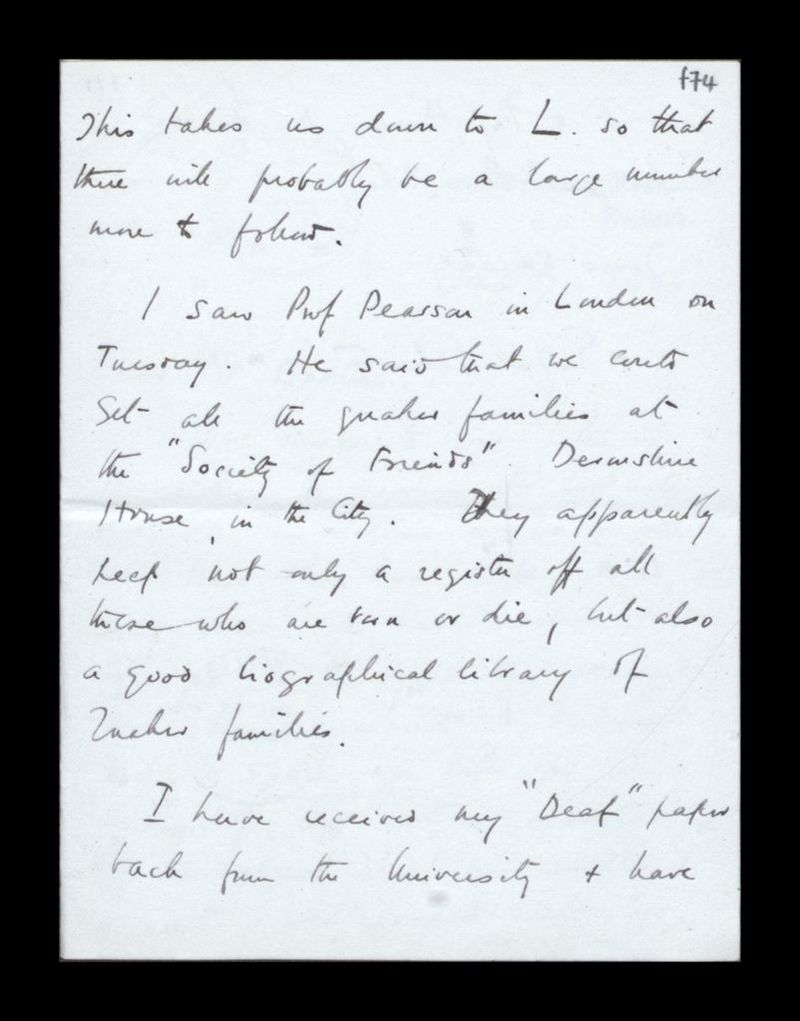 f74
This takes us down to L. so that
there will probably be a large number
more to follow.
I saw Prof Pearson in London on
Tuesday. He said that we could
get all the quaker families at
the "Society of Friends". Devonshire
House, in the City. They apparently
keep not only a register off all
those who are born or die, but also
a good biographical library of
Quaker families.
I have received my "Deaf" paper
back from the University & have